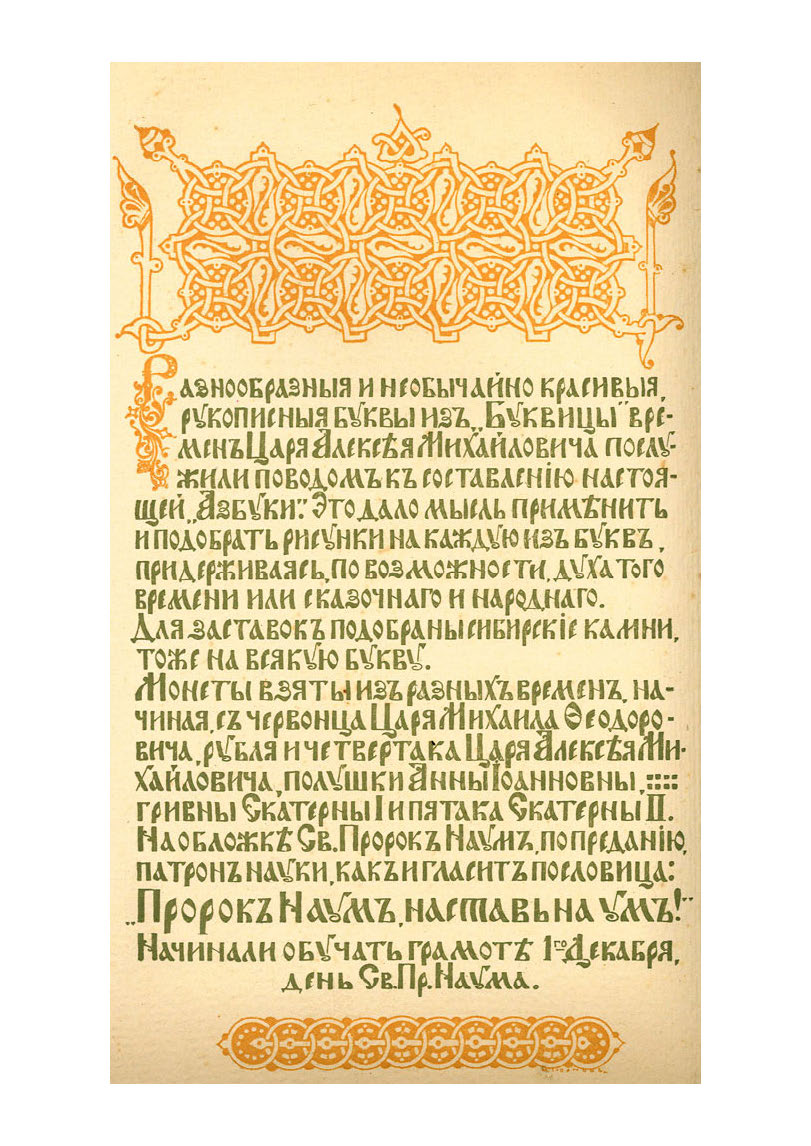 Разнообразныя и необычайно красивыя,
рукописныя буквы изъ „Буквицы" вре-
менъ Царя Алексѣя Михайловича послу-
жили поводомъ къ составленію настоя-
щей „Азбуки". Это дало мысль примѣнить
и подобрать рисунки на каждую изъ буквъ,
придерживаясь, по возможности, духа того
времени или сказочнаго и народнаго.
Для заставокъ подобраны сибирскіе камни,
тоже на всякую букву.
Монеты взяты изъ разныхъ временъ, на-
чиная, съ червонца Царя Михаила Ѳеодоро-
вича, рубля и четвертака Царя Алексѣя Ми-
хайловича, полушки Анны Іоанновны,
гривны Екатерны I и пятака Екатерны II.
На обложкѣ Св. Пророкъ Наумъ, по преданію,
патронъ науки, какъ и гласитъ пословица:
„Пророкъ Наумъ, наставь на умъ!"
Начинали обучать грамотѣ 1го Декабря,
день Св. Пр. Наума.